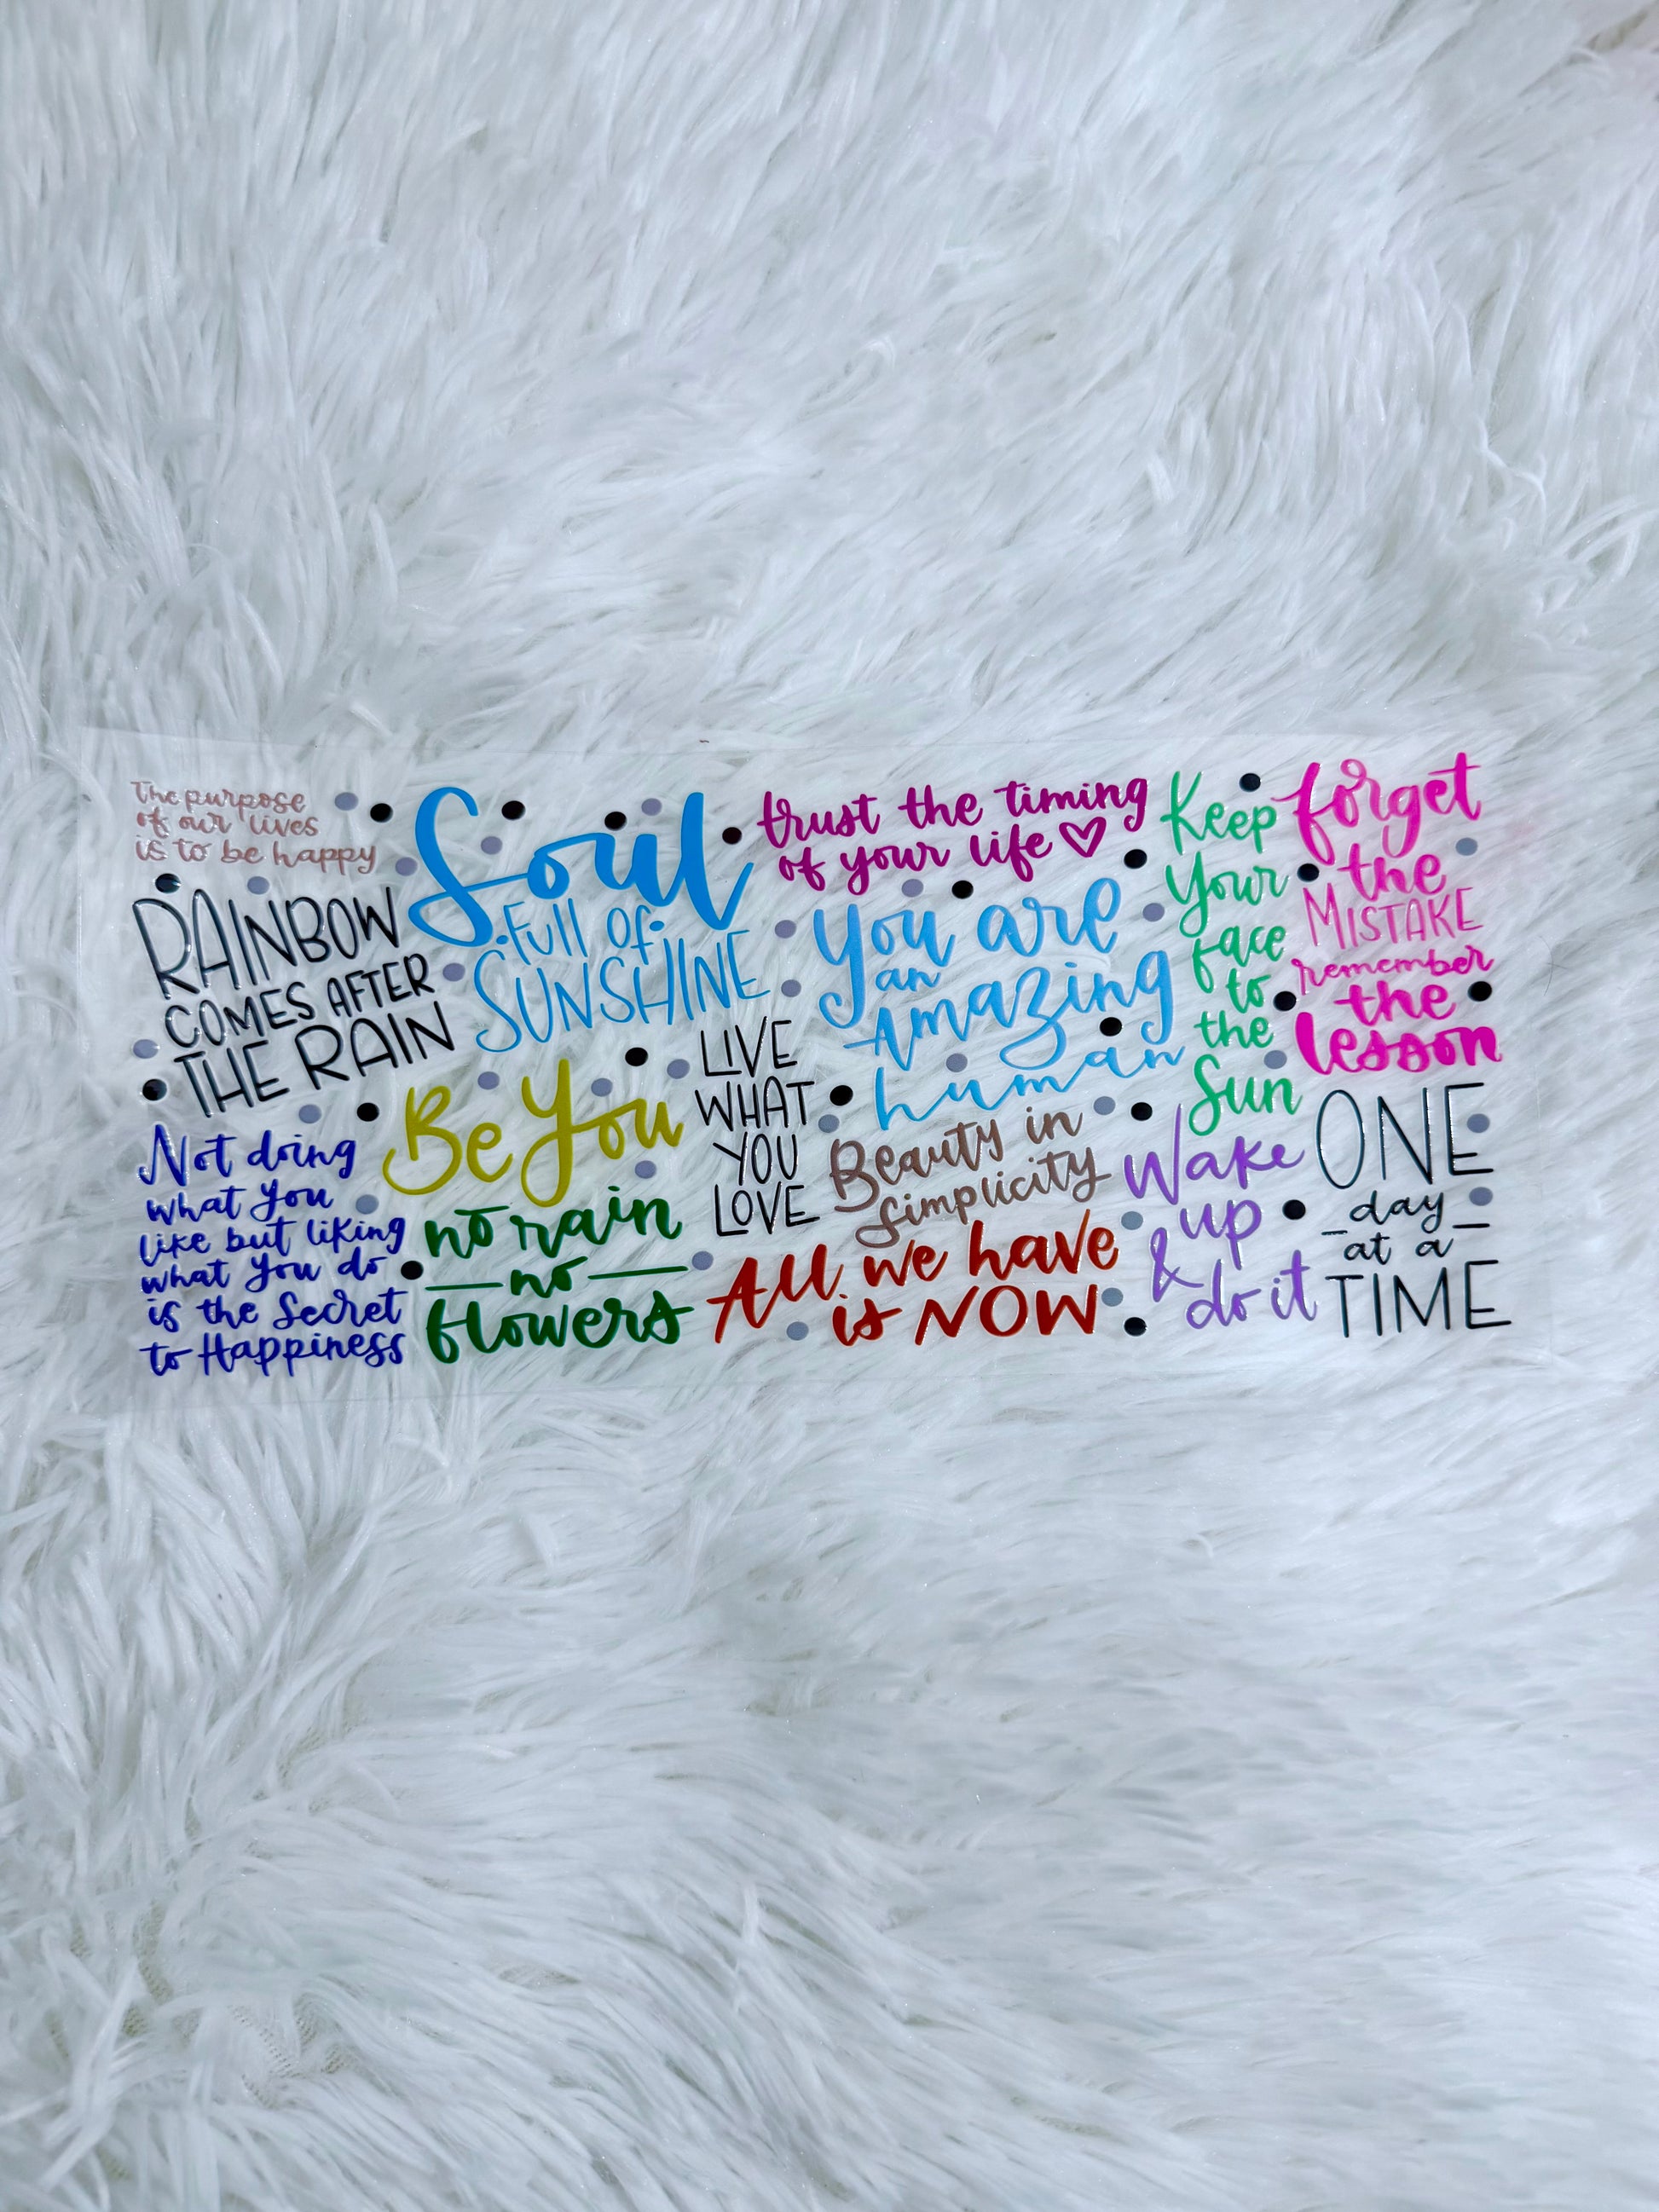 The purpose
of our lives
is to be happy
RAINBOW
COMES AFTER
THE RAIN
Not doing
what you
like but liking
what you do
is the Secret
to Happiness
Soul
Full of
SUNSHINE
Be You
no rain
no
flowers
trust the timing
of your life
You are
an
Amazing
human
LIVE
WHAT
YOU
LOVE
Beauty in
Simplicity
All we have
is NOW
Keep
Your
face
to
the
Sun
Wake
up
&
do it
forget
the
MISTAKE
remember
the
lesson
ONE
day
at a
TIME